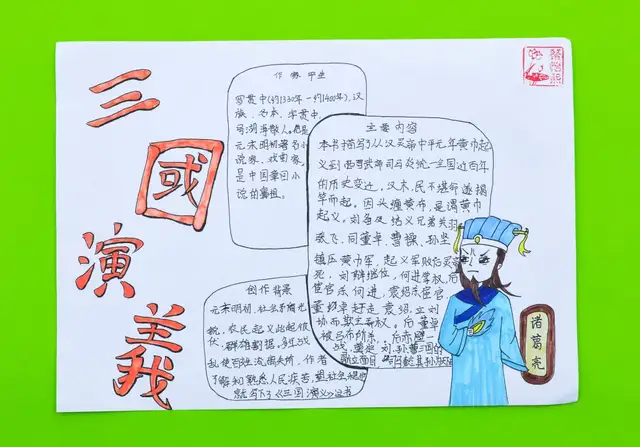 三
國
演
義
作者毕业
罗贯中(约1330年一约1400年),汉
族,名本,字贯中,
号湖海散人。他是
元末明初著名小
说家、戏曲家,
是中国章回小
说的鼻祖。
主要内容
本书描写了从汉灵帝中平元年黄巾起
义到西晋武帝司马炎统一全国近百年
的历史变迁,汉末,民不堪命遂揭
竿而起。因头缠黄布,是谓黄巾
起义。刘备及结义兄弟关羽、
张飞,同董卓、曹操、孙坚
镇压黄巾军,起义军败后灵帝
死,刘辩继位,何进掌权,后
宦官杀何进,袁绍杀宦官,
董卓赶走袁绍,立刘
协而欺主弄权。后董卓
被吕布所杀,后赤壁一
战,奠定刘、孙曹三国的
创作背景
元末明初,社会矛盾尖
锐,农民起义此起彼
伏,群雄割据,多年战
乱使百姓流离失所,作者
了解和熟悉人民疾苦,望社会
就写下了《三国演义》这书
诸葛亮